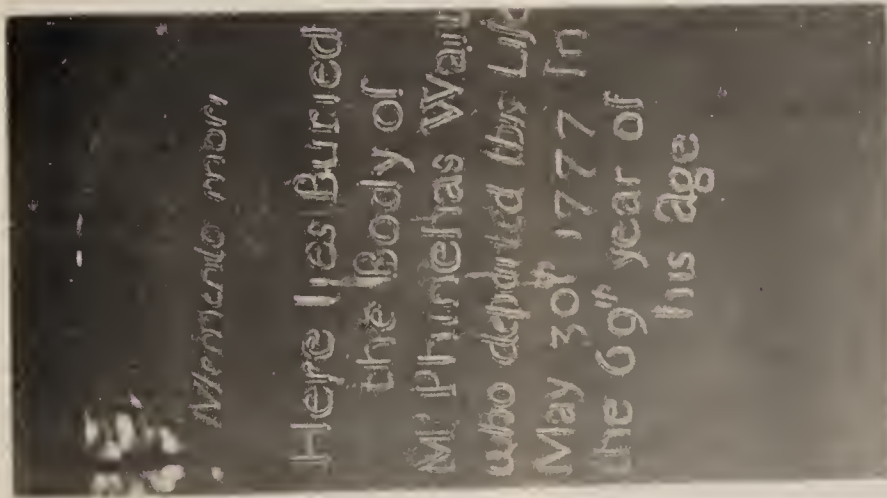 Memento mori
Here lies Buried
the Body of
Mr Phinehas
who departed this Life
May 30th 1777 In
the 69th year of
his age